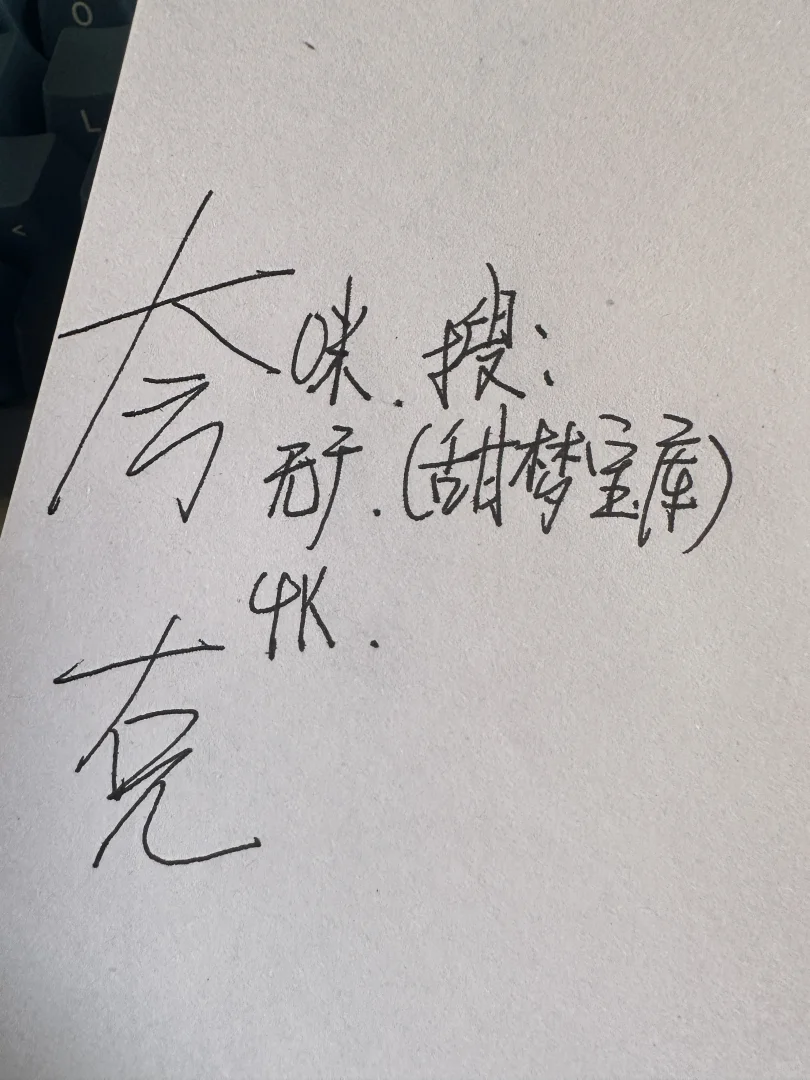 夸
咪.搜:
无于.(甜梦宝库)
4K.
克
O
L
<